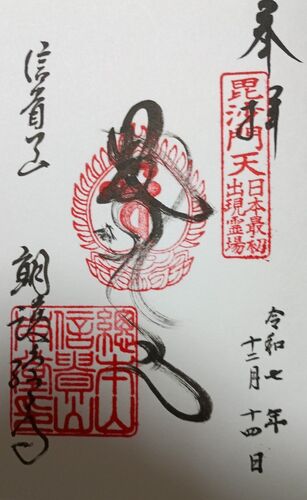 奉拝
毘沙門天
日本最初
出現霊場
令和七年
十二月十四日
信貴山
朝護孫子寺
総本山
信貴山